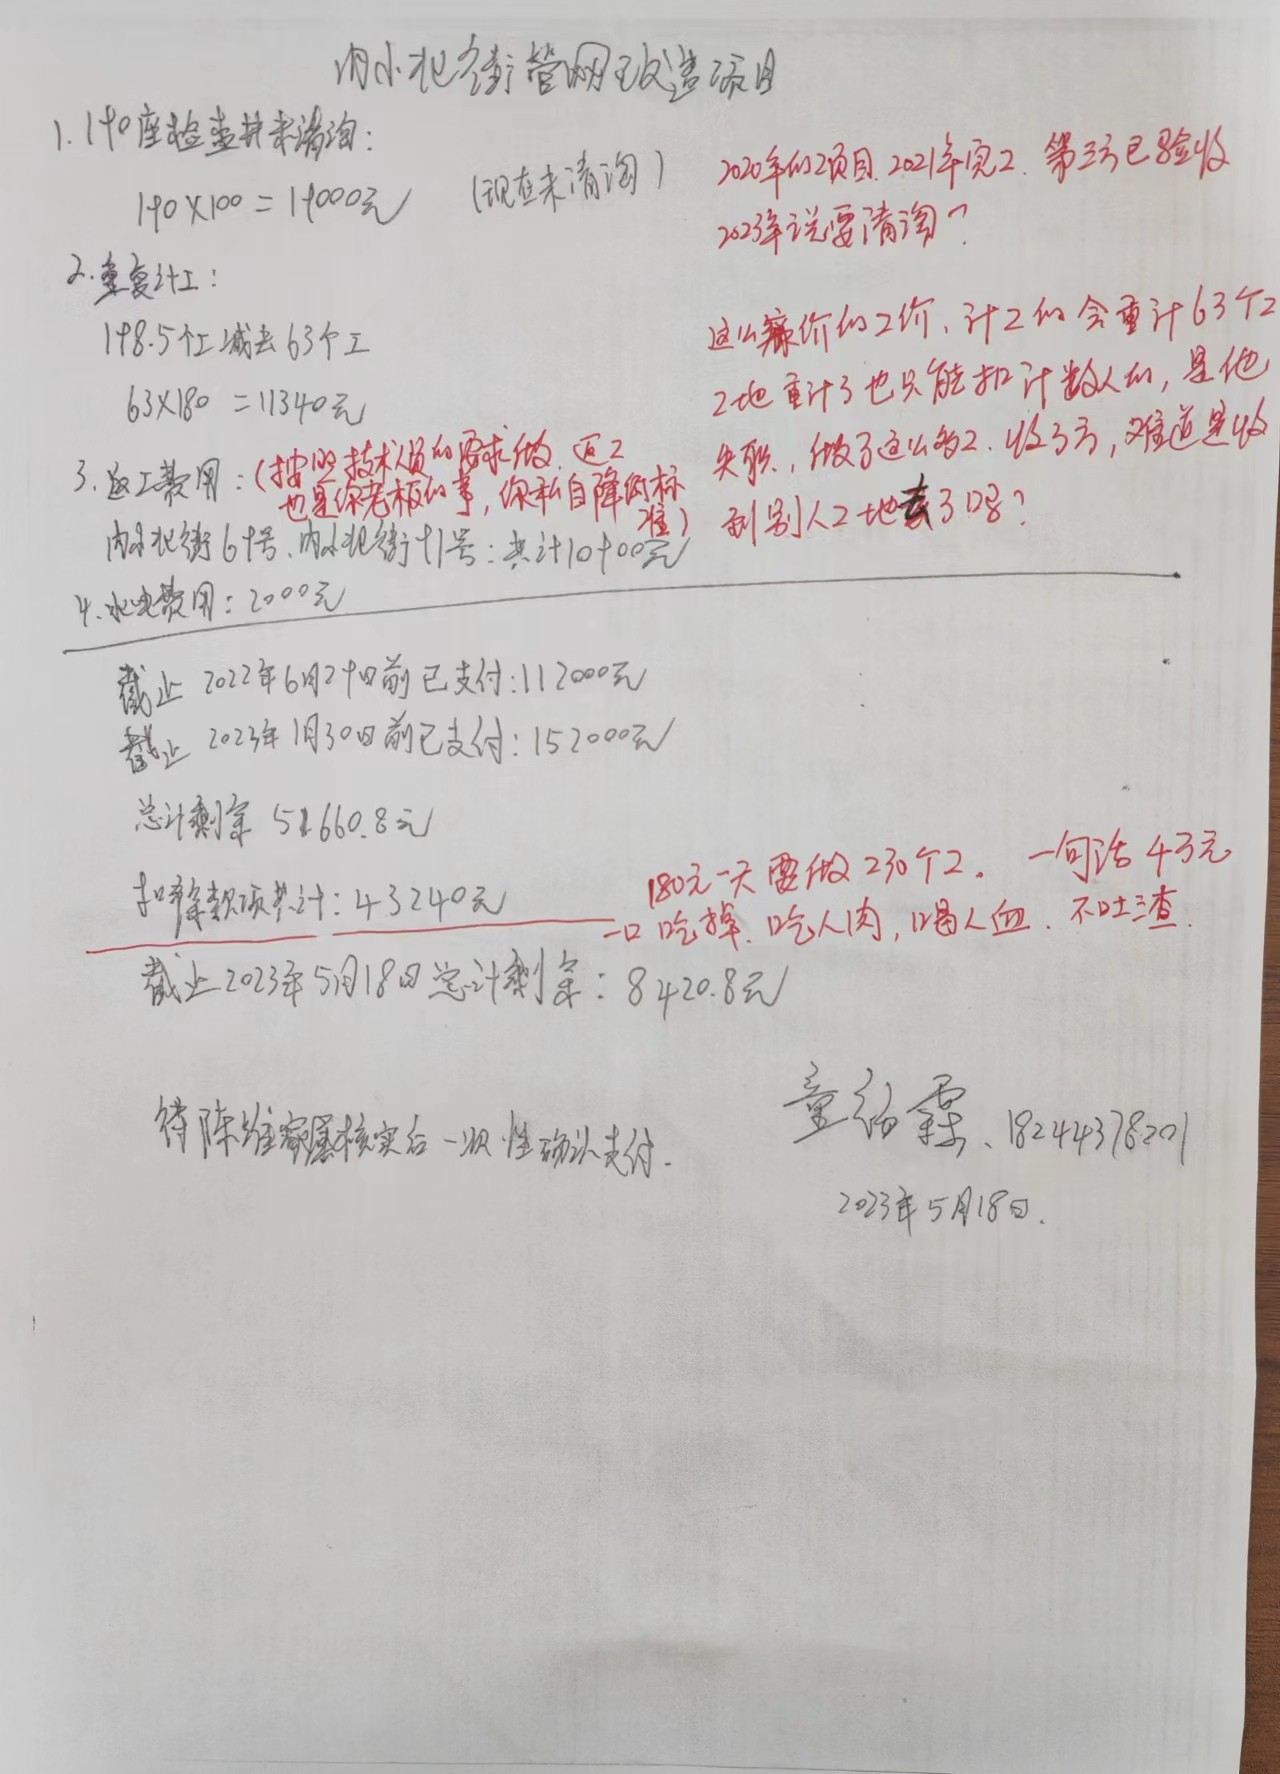 内水北街管网改造项目
1. 140座检查井未清淘：
140×100=14000元 （现在未清淘）
2020年的工项目. 2021年完工. 第三方已验收
2023年说要清淘？
2. 重复计工：
148.5个工减去63个工
63×180=11340元
这么廉价的工价、计工的会重计63个工
工地重计了也只能扣计数人的，是他
失职、做了这么多工. 收了方，难道是收
到别人工地去了吗？
3. 返工费用：（按照技术人员的要求做. 返工
也是你老板的事，你私自降低标
准）
内水北街64号、内水北街41号：共计10400元
4. 水电费用：2000元
截止2022年6月24日前已支付：112000元
截止2023年1月30日前已支付：152000元
总计剩余 51660.8元
扣除款项共计：43240元
180元一天要做230个工。 一句话4万元
一口吃掉、吃人肉，喝人血. 不吐渣.
截止2023年5月18日总计剩余：8420.8元
待陈维核实后一次性确认支付.
童 霖、18244378201
2023年5月18日.